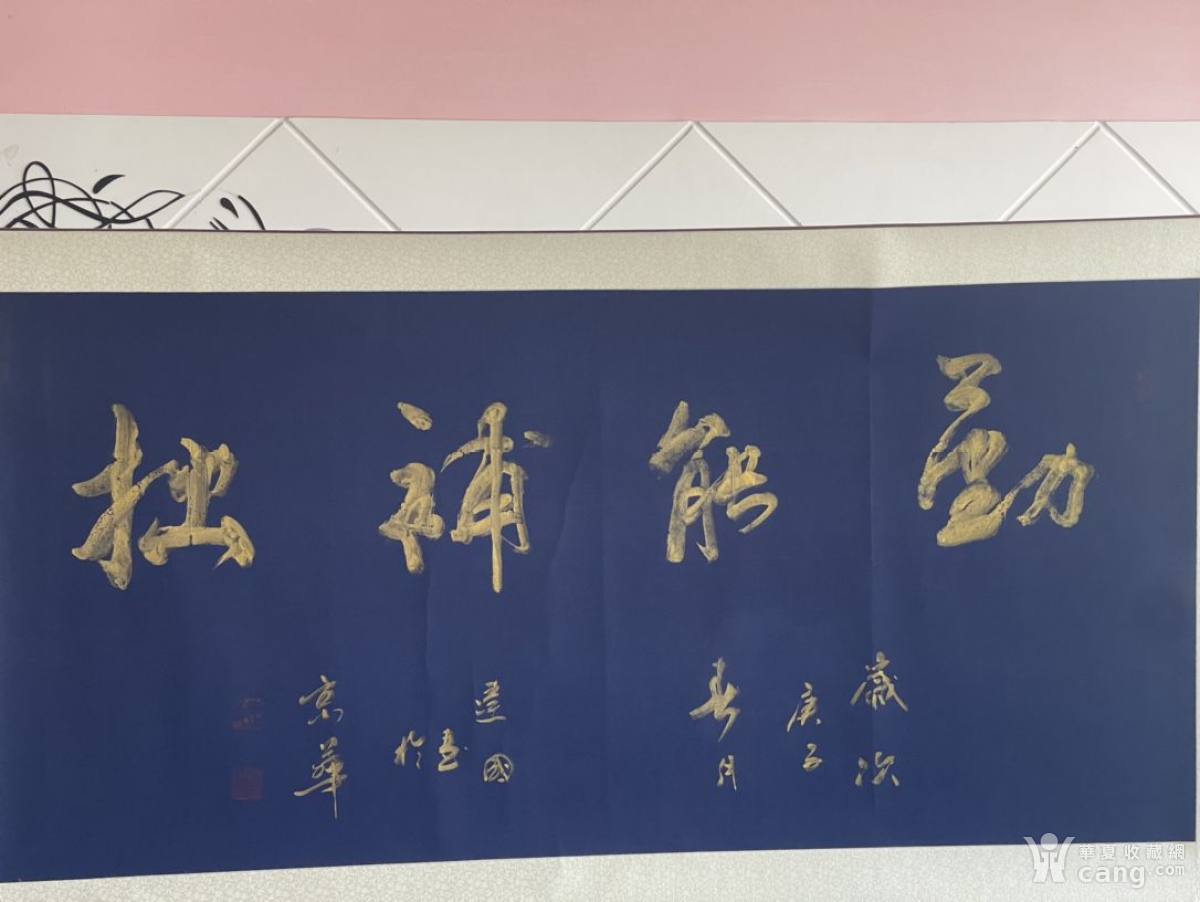 勤能補拙
歲次
庚子
春月
達國
書
於
京華
華夏收藏網
cang.com